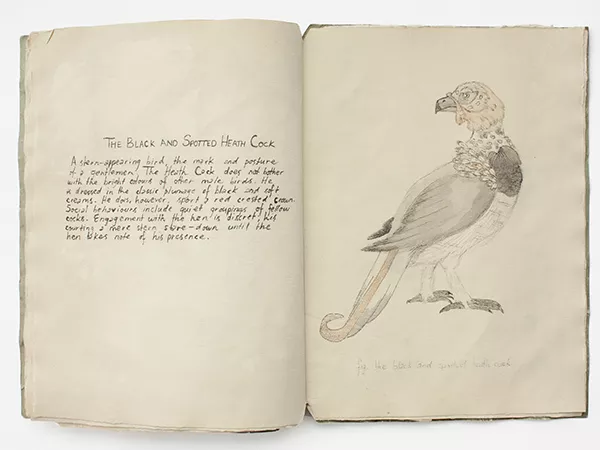 THE BLACK AND SPOTTED HEATH COCK
A stern-appearing bird, the mark and posture
of a gentlemen. The Heath Cock does not bother
with the bright colours of other male birds. He
is dressed in the classic plumage of black and soft
creams. He does, however, sport a red crested crown.
Social behaviours include quiet groupings of fellow
cocks. Engagement with the hen is discreet, his
courting a mere stern stare-down until the
hen takes note of his presence.
fig. the black and spotted heath cock